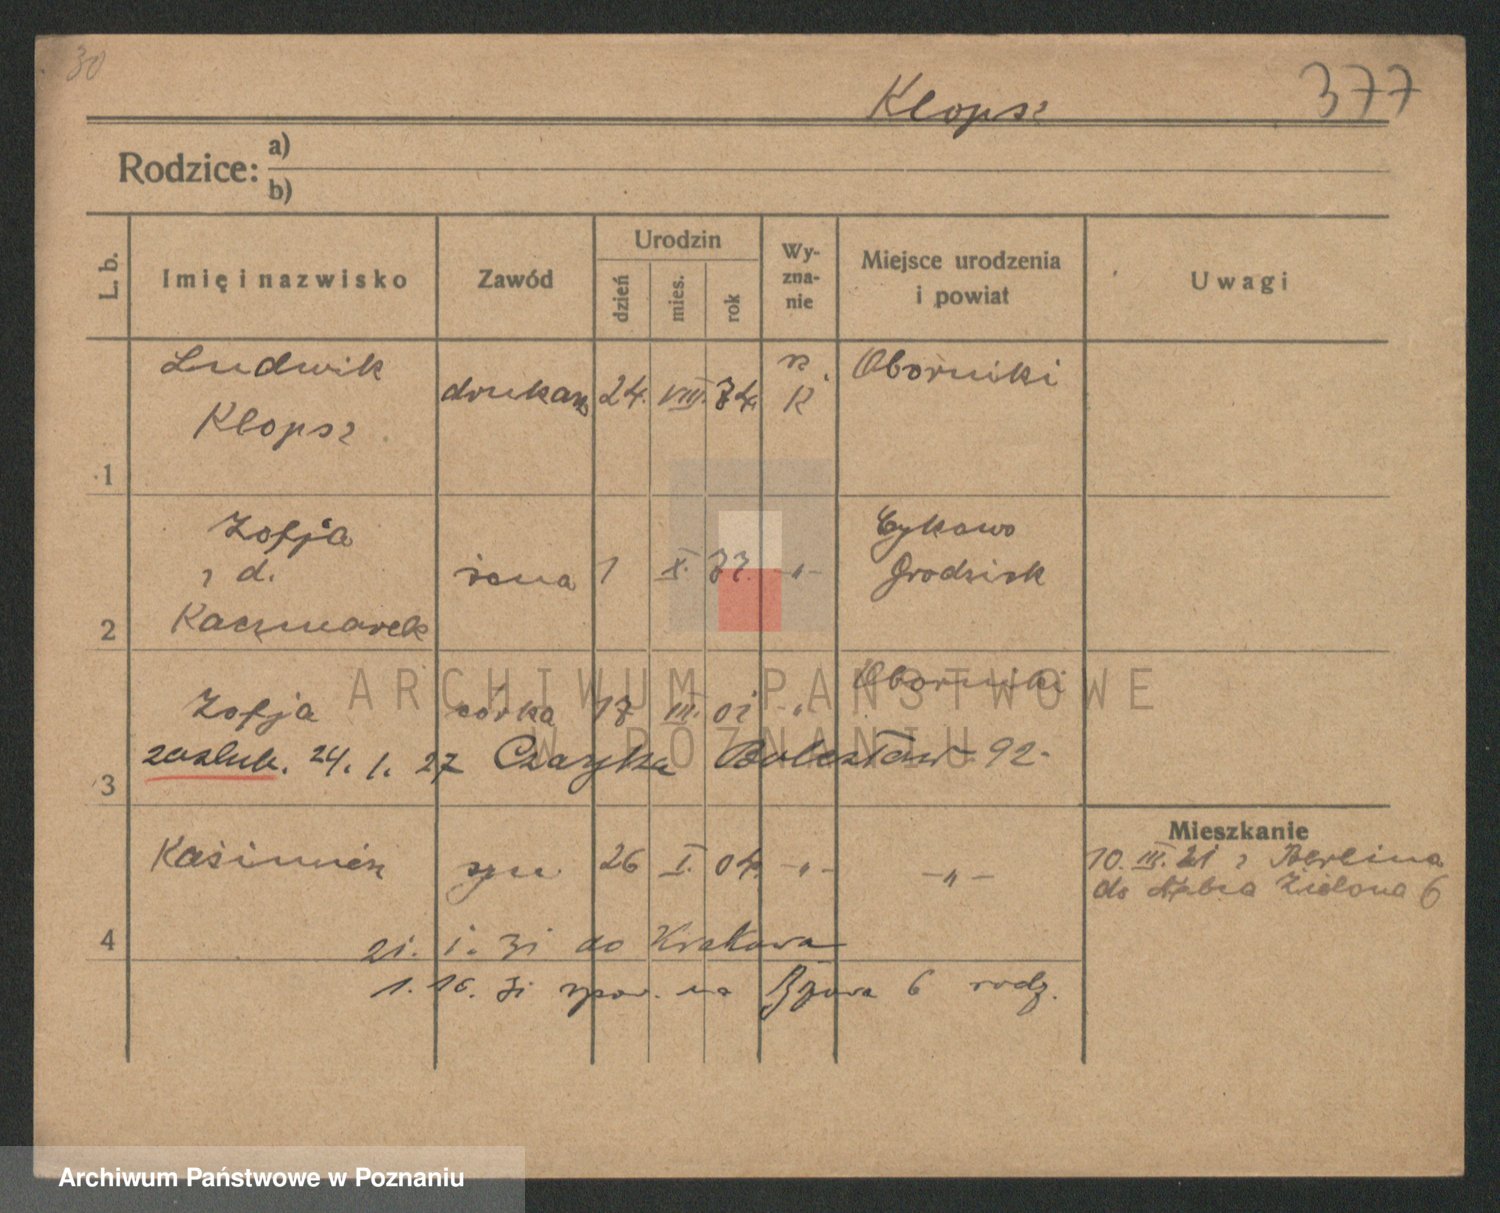 30
Klopsz
377
Rodzice: a)
b)
L. b.
Imię i nazwisko
Zawód
Urodzin
dzień
mies.
rok
Wy-
zna-
nie
Miejsce urodzenia
i powiat
Uwagi
1
Ludwik
Klopsz
drukarz
24. VIII. 74.
r.
K
Oborniki
2
Zofja
z d.
Kaczmarek
żona
1 X. 77. -"-
Cykowo
Grodzisk
3
Zofja
córka
17 III. 01 -"-
Oborniki
zaslub. 24. 1. 27 Czaryka Bolesław 92-
4
Kaźimierz
syn
26 I. 04. -"-
-"-
21. 1. 31 do Krakowa
1. 10. 31 spow. na 6 rodz.
Mieszkanie
10. III. 21 z Berlina
do Zielona 6
ARCHIWUM PAŃSTWOWE
W POZNANIU
Archiwum Państwowe w Poznaniu